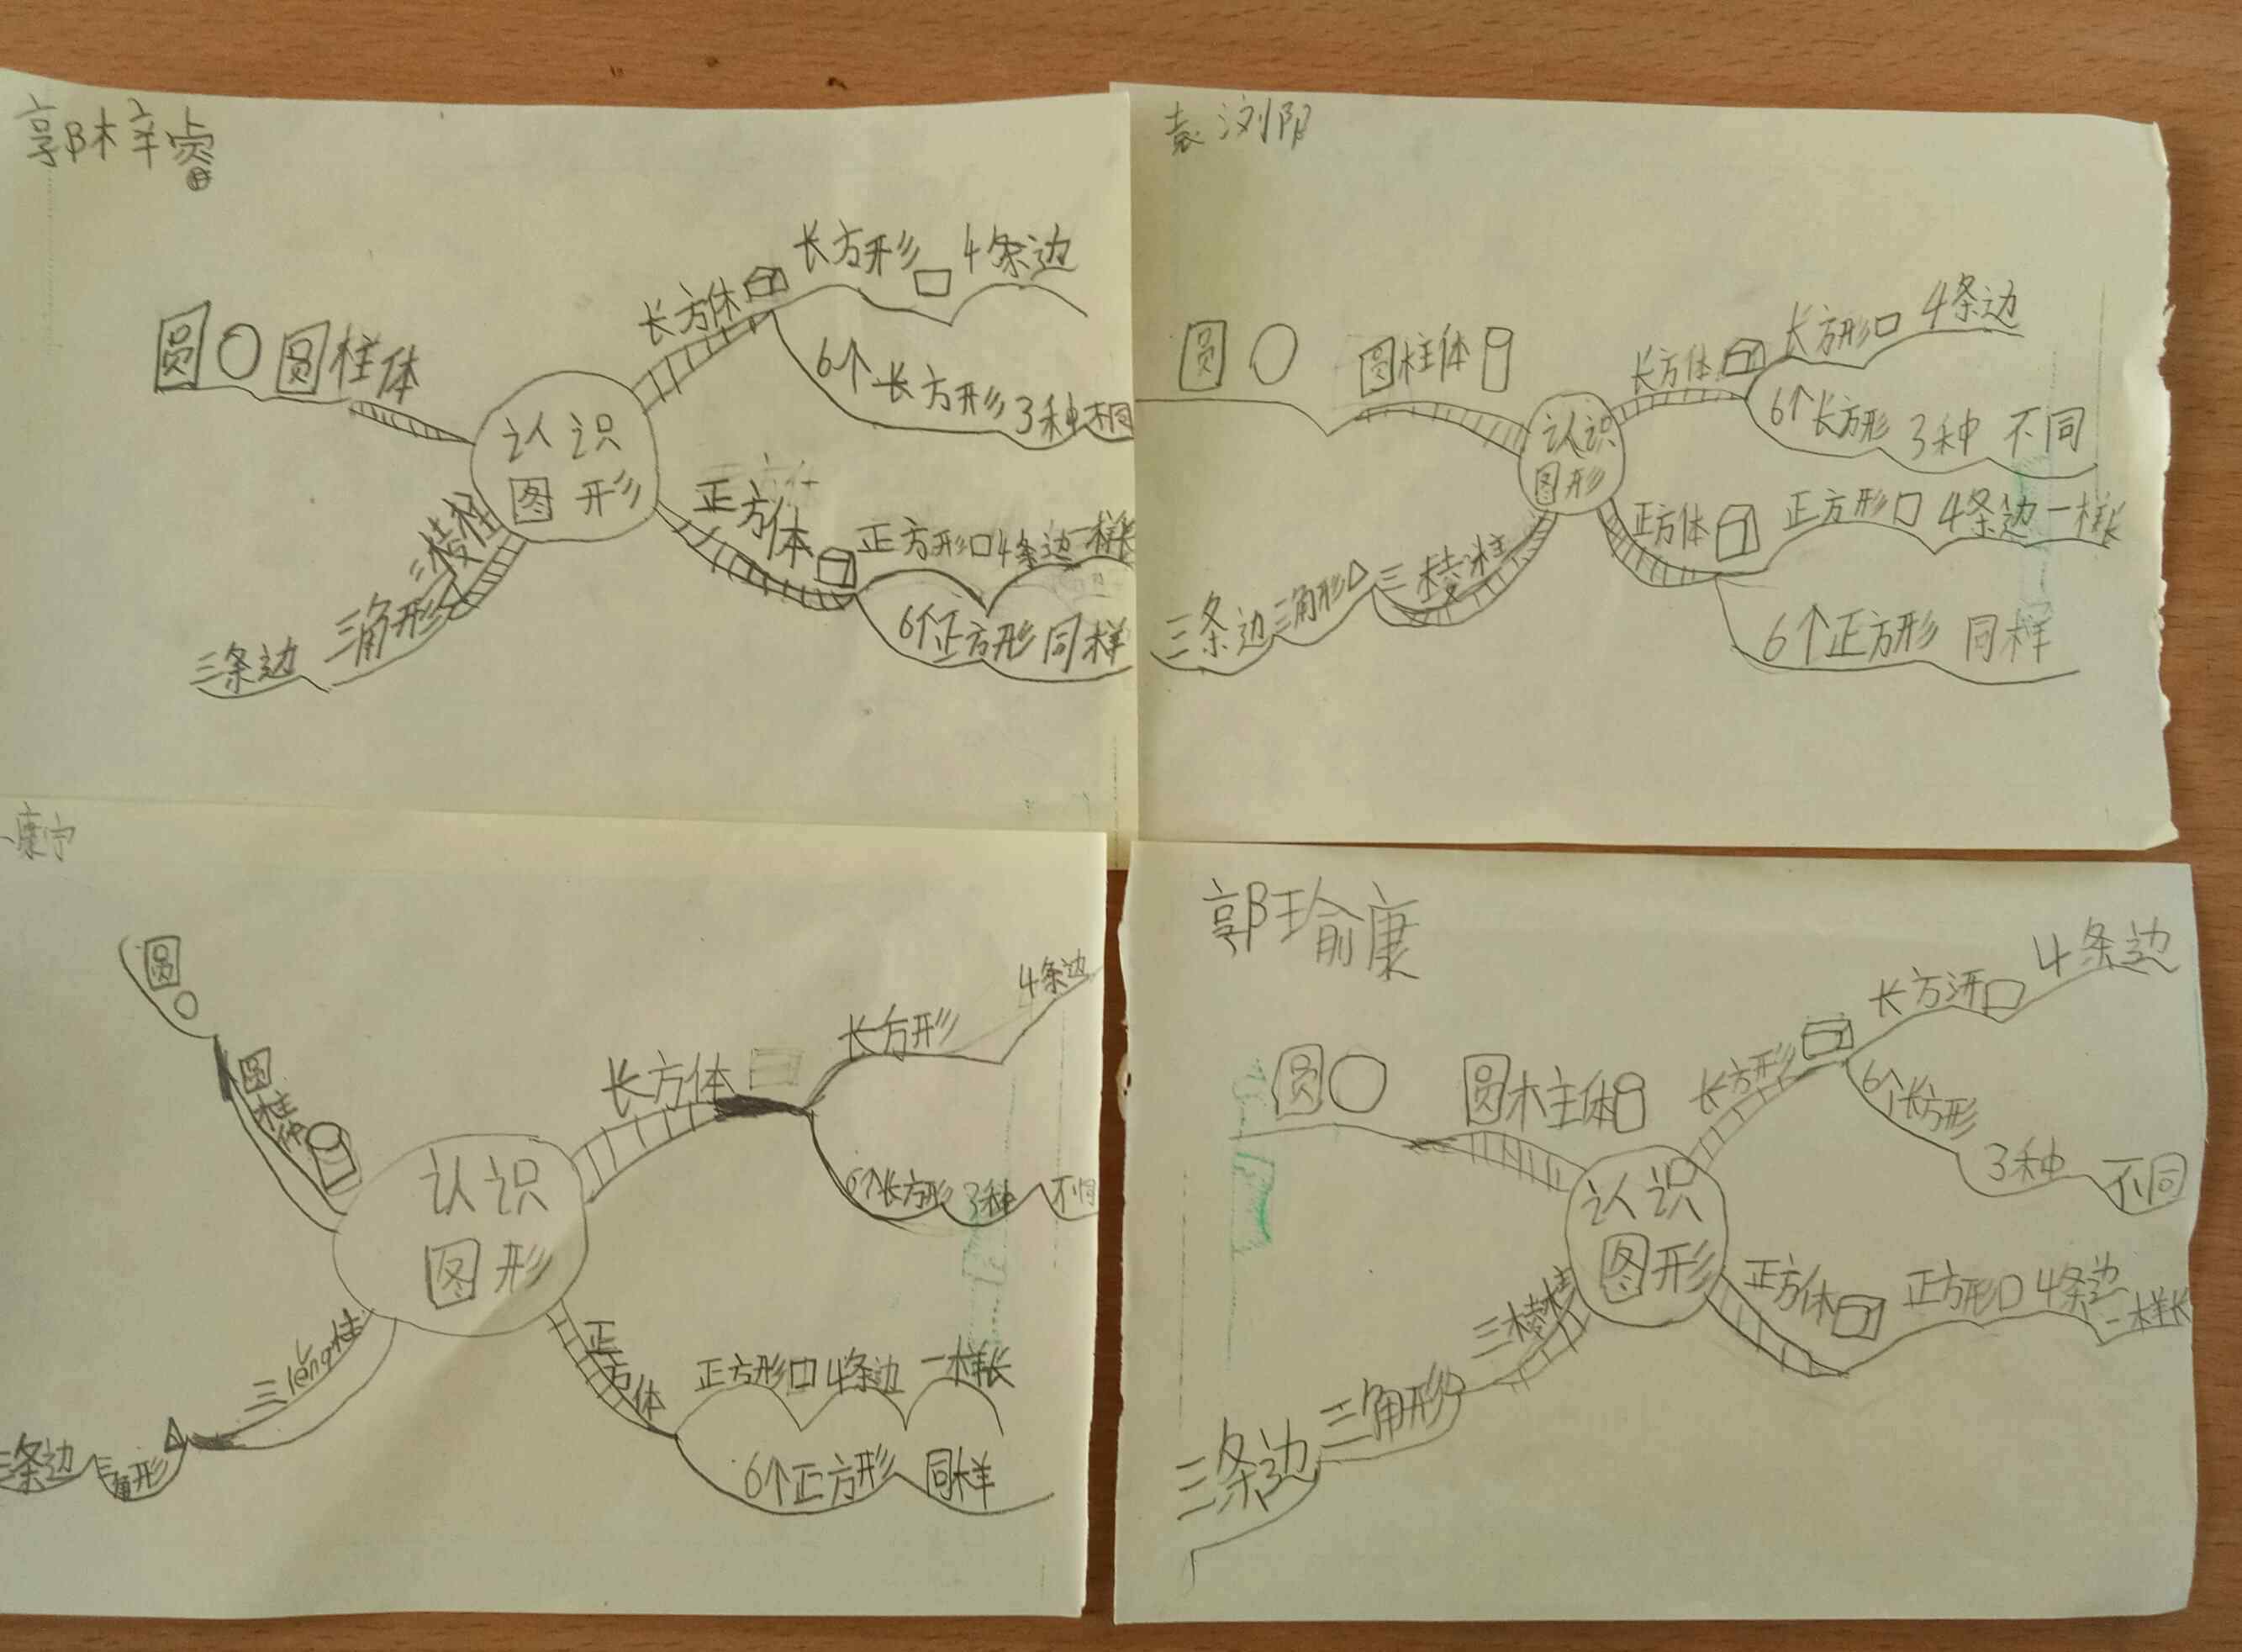 郭梓睿
长方形 4条边
长方体
6个 长方形 3种 不同
圆 圆柱体
认识
图形
正方体
正方形 4条边 一样长
6个正方形 同样
三棱柱
三角形
三条边
袁浏阳
长方形 4条边
长方体
6个 长方形 3种 不同
圆 圆柱体
认识
图形
正方体 正方形 4条边 一样长
6个正方形 同样
三棱柱
三角形
三条边
康宁
圆
圆柱体
4条边
长方形
长方体
6个长方形 3种 不同
认识
图形
正方体
正方形 4条边 一样长
6个正方形 同样
三léng柱
三条边 三角形
郭瑜康
4条边
长方形
长方形
6个长方形
3种 不同
圆 圆柱体
认识
图形
正方体 正方形 4条边
一样长
三棱柱
三角形
三条边